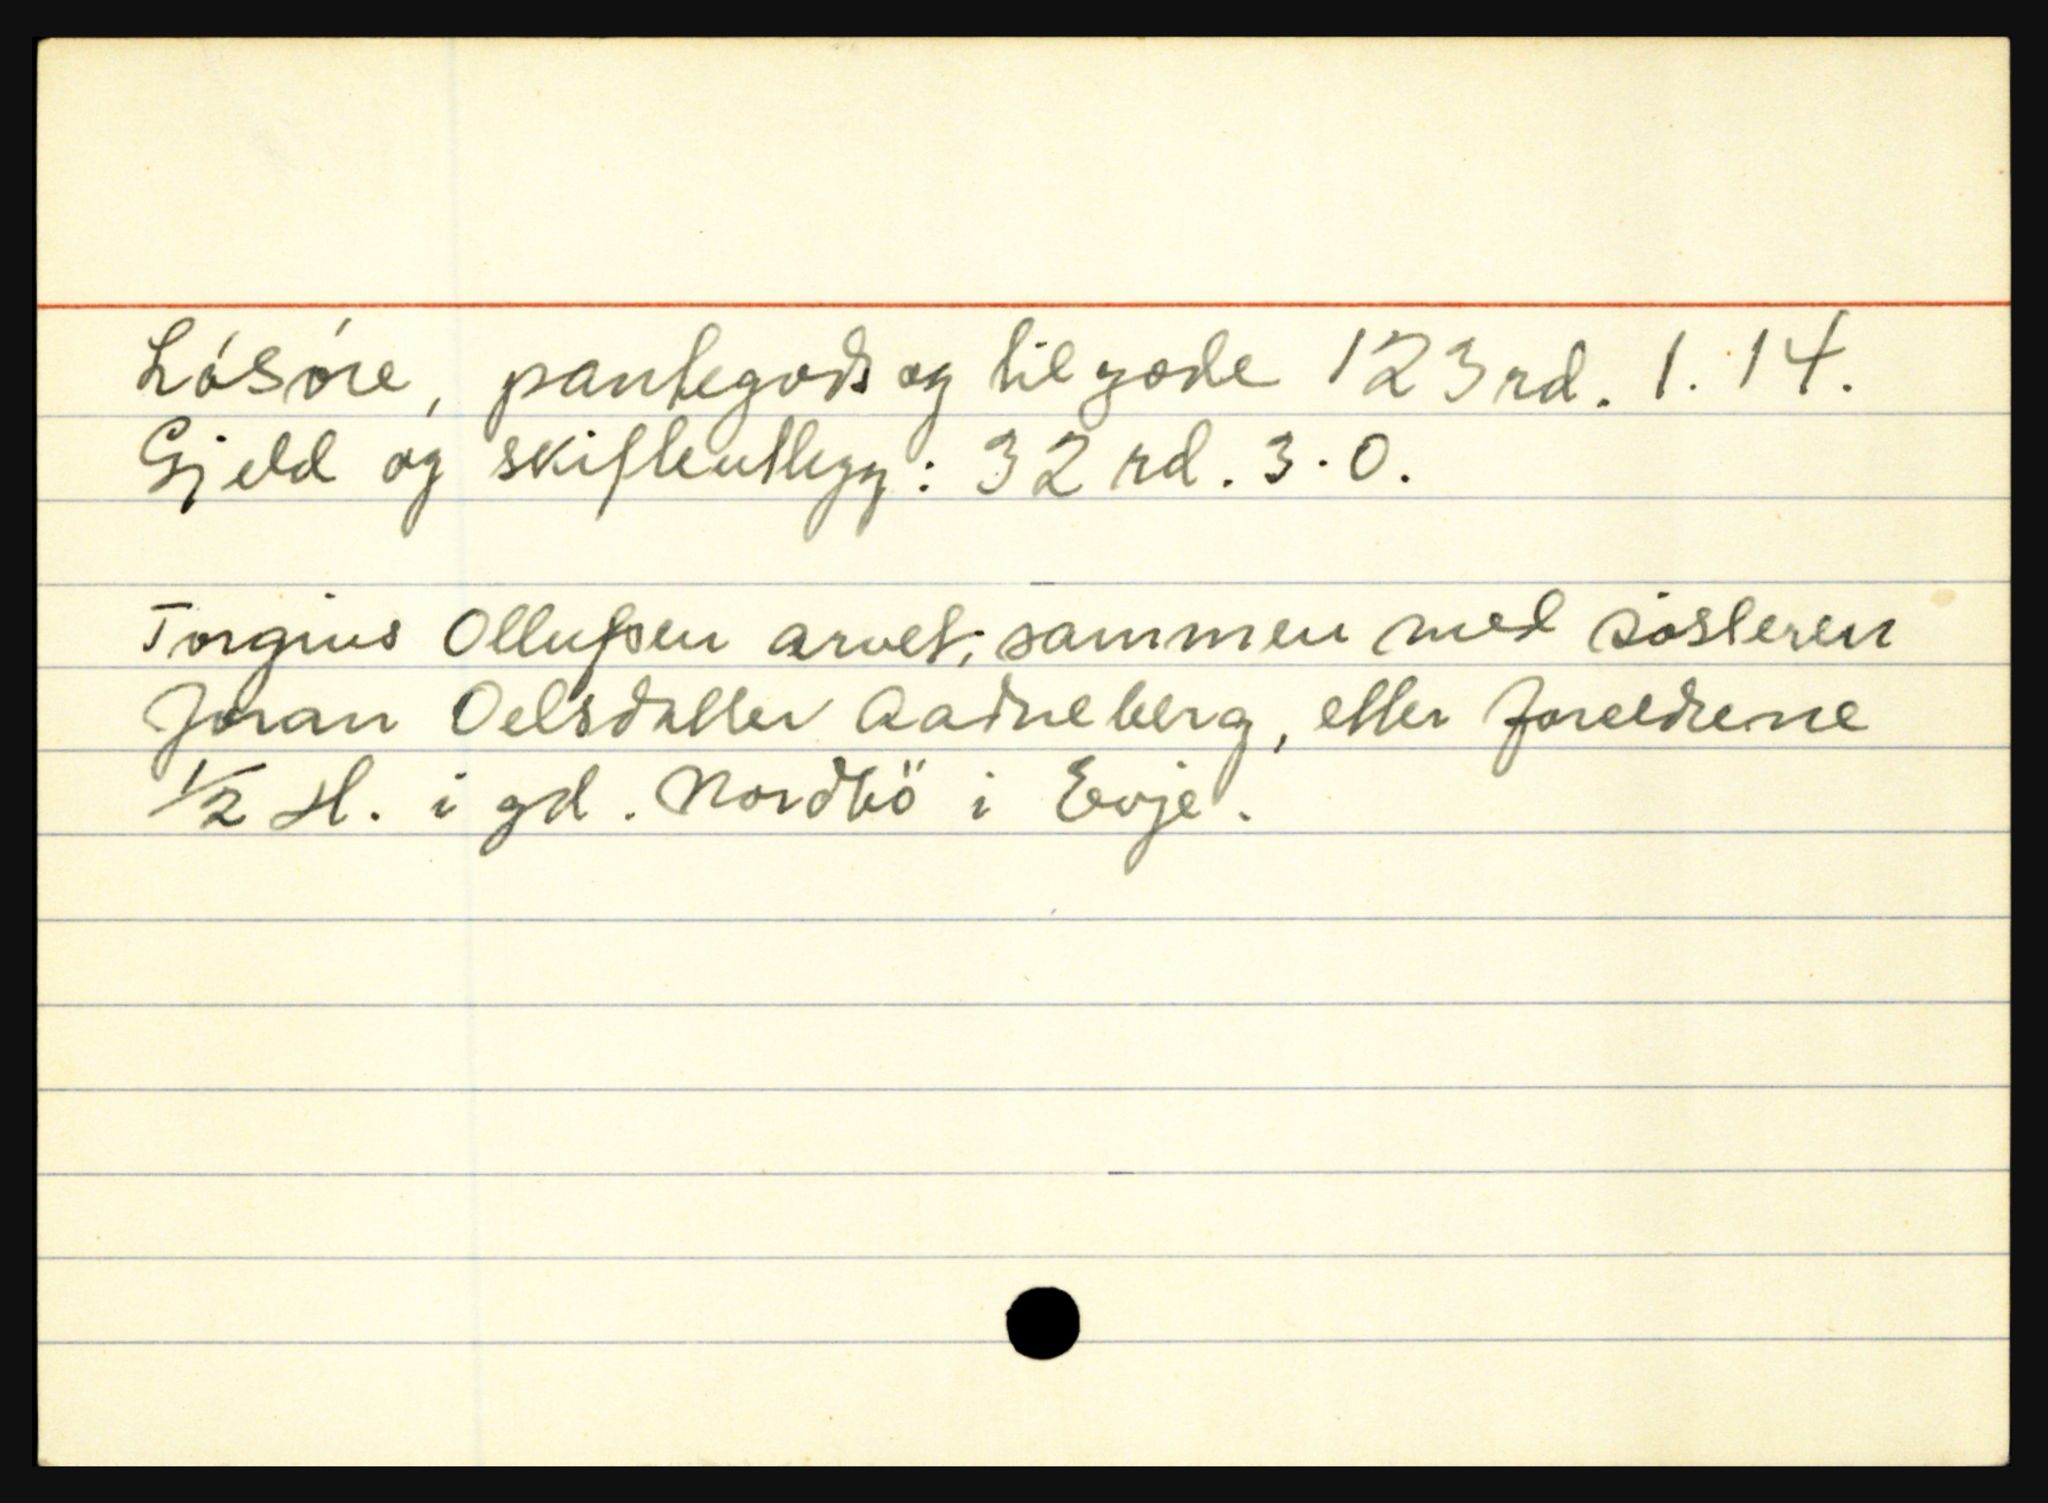 Lósóre, pantegods og tilgode 123 rd. 1. 14.
Gjeld og skifteutlegg: 32 rd. 3. 0.
Torgius Ollufsen arvet, sammen med sósteren
Joran Oelsdatter Aadneberg, etter foreldrene
1/2 H. i gd. Nordbö i Evje.